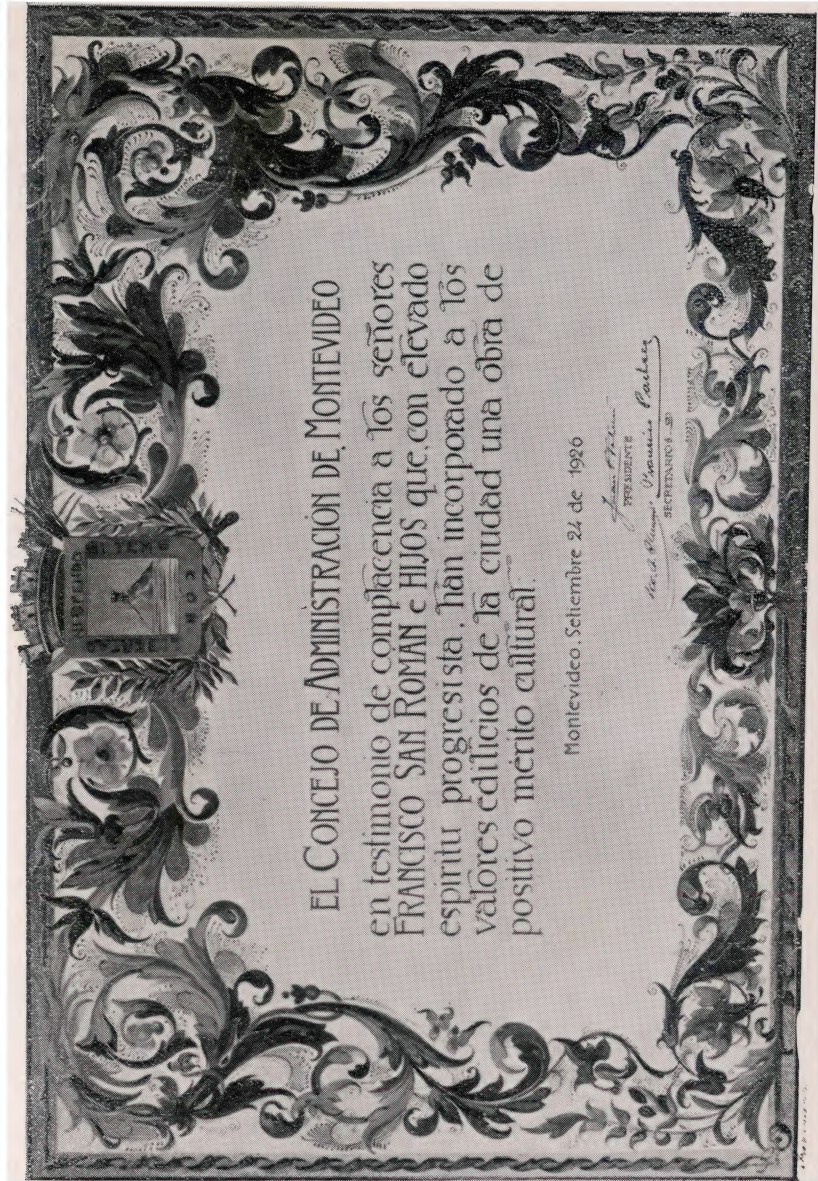 CON LIBERTAD
NI OFENDO
NI TEMO
EL CONCEJO DE ADMINISTRACIÓN DE MONTEVIDEO
en testimonio de complacencia a los señores
FRANCISCO SAN ROMÁN e HIJOS que, con elevado
espíritu progresista, han incorporado a los
valores edilicios de la ciudad una obra de
positivo mérito cultural.
Montevideo, Setiembre 24 de 1926
PRESIDENTE
Francisco Pacheco
SECRETARIOS